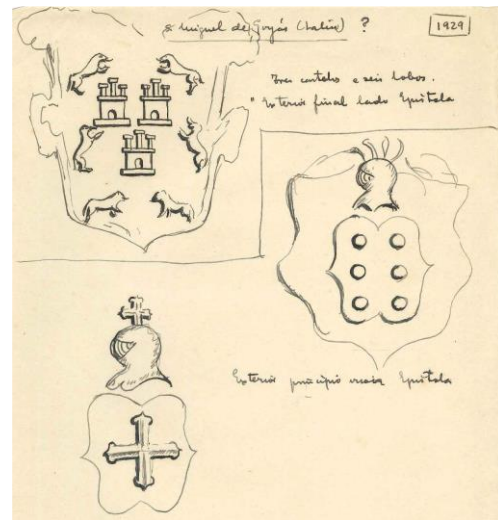 S. Miguel de Goyás (Lalín) ?
1929
Tres castelos e seis lobos.
" Exterior final lado Epístola
Exterior principio Epístola